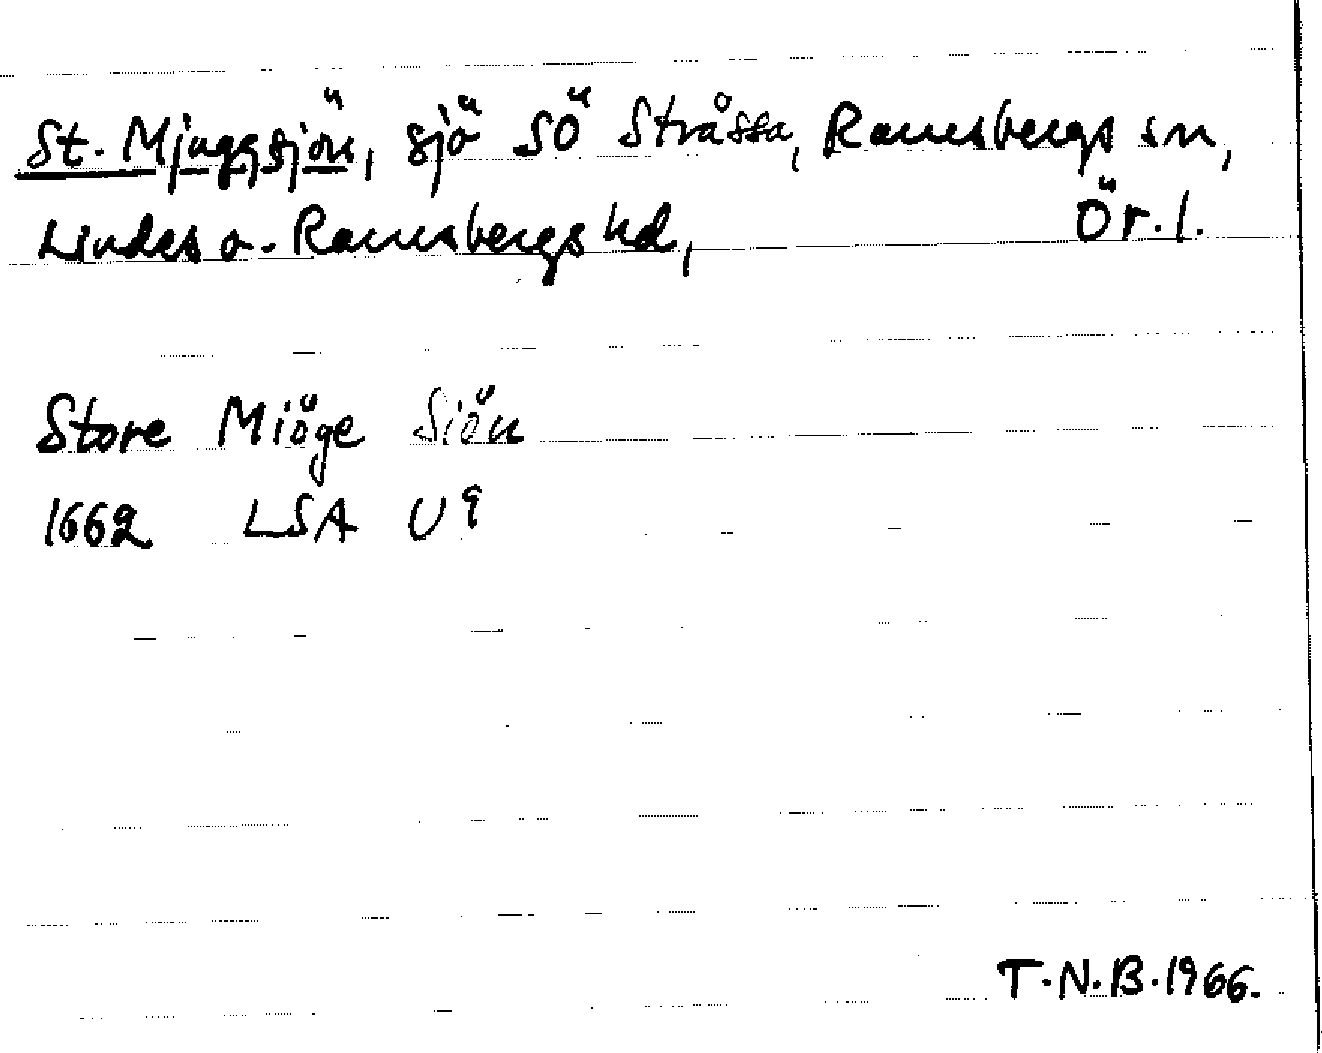 St. Mjuggsjön, sjö SÖ Stråssa, Ramsbergs sn,
Lindes o. Ramsbergs hd, Ör. l.
Store Miöge Siön
1662 LSA U 9
T.N.B. 1966.